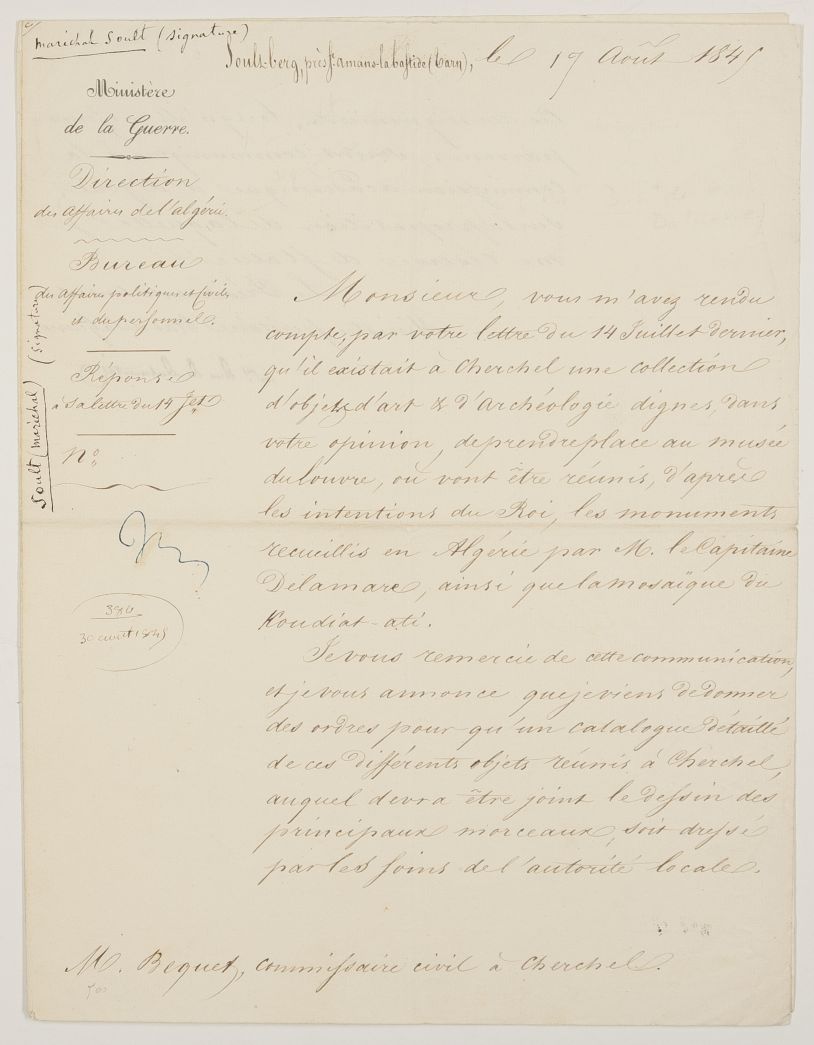 maréchal Soult (signature)
Soult-berg, près St. amans-la bastide (Tarn), le 17 Août 1845
Ministère
de la Guerre.
Direction
des affaires de l'algérie.
Bureau
des affaires politiques et civiles
et du personnel.
Réponse
à sa lettre du 14 Jet
N°
Soult (maréchal) (signature)
384
30 août 1845
Monsieur, vous m'avez rendu
compte, par votre lettre du 14 Juillet dernier,
qu'il existait à Cherchel une collection
d'objets d'art & d'archéologie dignes, dans
votre opinion, de prendre place au musée
du louvre, où vont être réunis, d'après
les intentions du Roi, les monuments
recueillis en Algérie par M. le Capitaine
Delamare, ainsi que la mosaïque du
Koudiat-ati.
Je vous remercie de cette communication,
et je vous annonce que je viens de donner
des ordres pour qu'un catalogue détaillé
de ces différents objets réunis à Cherchel,
auquel devra être joint le dessin des
principaux morceaux, soit dressé
par les soins de l'autorité locale.
M. Bequet, commissaire civil à Cherchel.